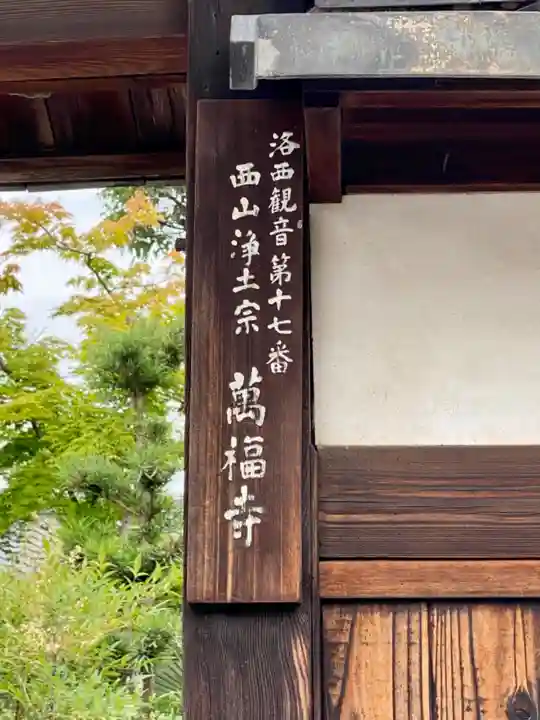 洛西観音第十七番
西山浄土宗
萬福寺